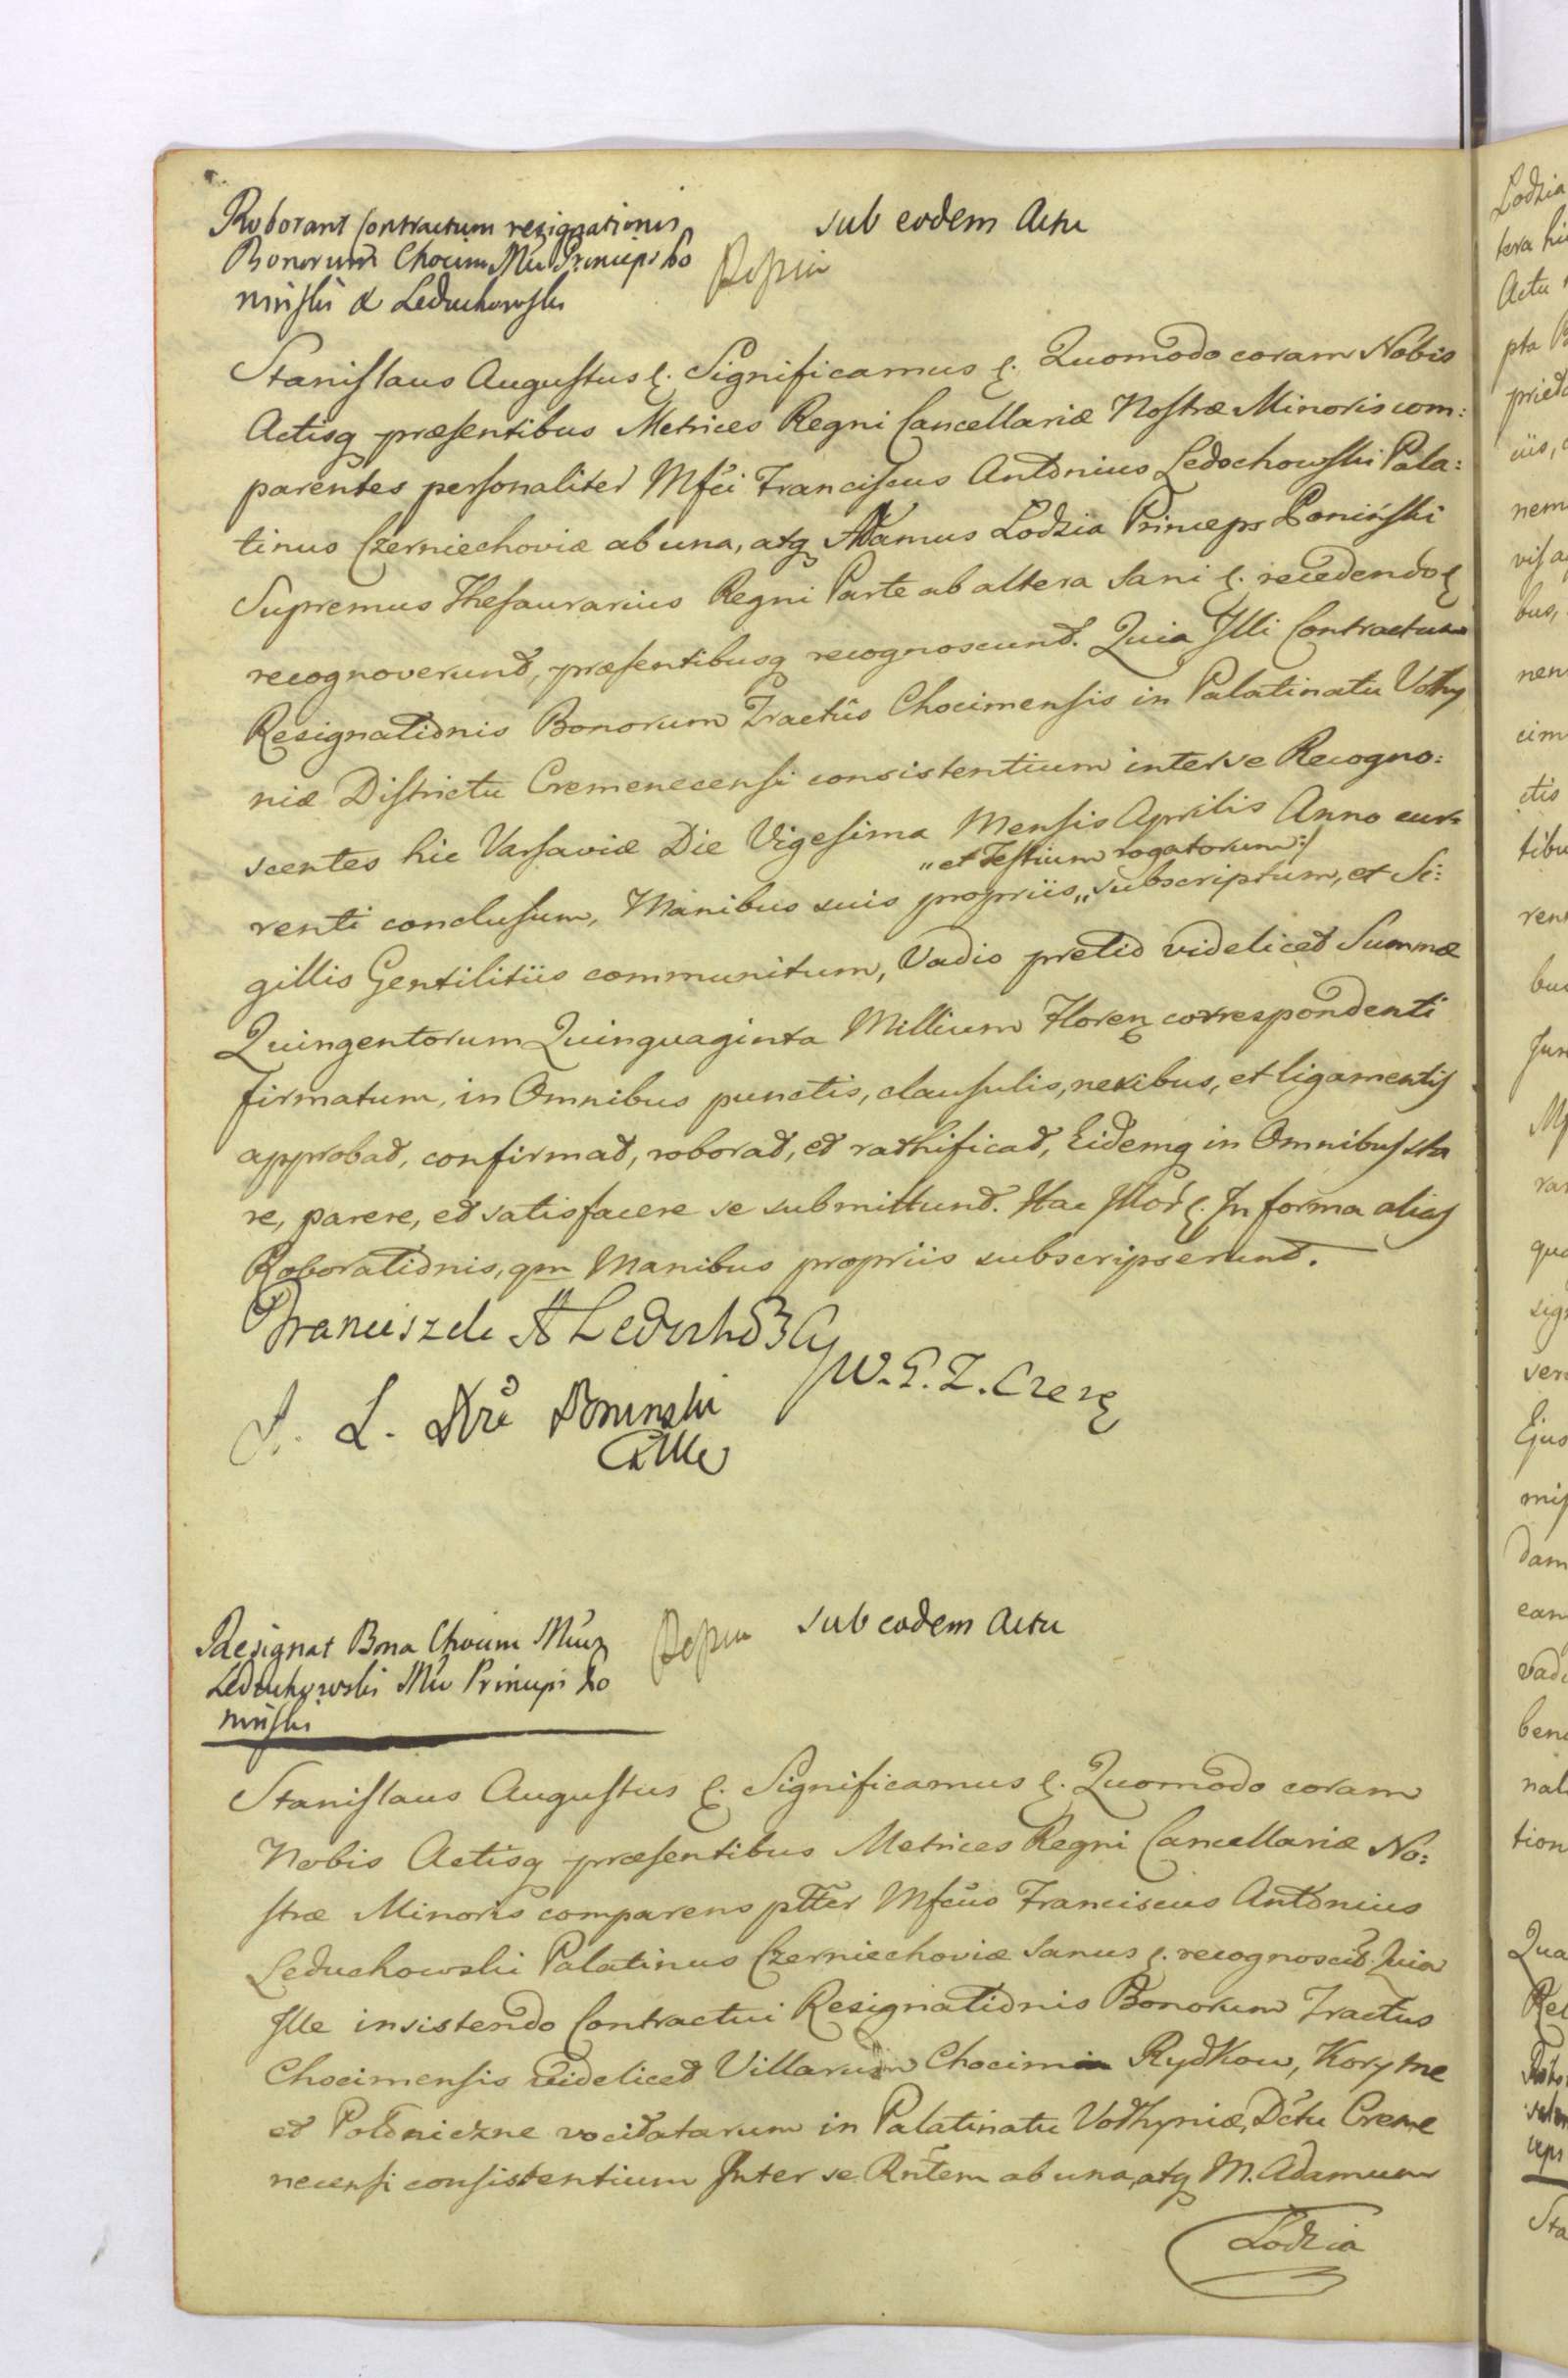 Roborant Contractum resignationis
Bonorum Chocim Mci Princips Po
niński & Leduchowski
sub eodem Actu
Stanislaus Augustus &. Significamus &. Quomodo coram Nobis
Actisq præsentibus Metrices Regni Cancellariæ Nostræ Minoris com:
parentes personaliter Mfci Franciscus Antonius Ledochowski Pala:
tinus Czerniechoviæ ab una, atq Adamus Lodzia Princeps Poniński
Supremus Thesaurarius Regni Parte ab altera Sani &. recedendo &
recognoverunt, præsentibusq recognoscunt. Quia Illi Contractum
Resignationis Bonorum Tractûs Chocimensis in Palatinatu Volhy
niæ Districtu Cremenecensi consistentium inter se Recogno:
scentes hic Varsaviæ Die Vigesima Mensis Aprilis Anno cur:
„et Testium rogatorum:/
renti conclusum, Manibus suis propriis„ subscriptum, et Si:
gillis Gentilitiis communitum, Vadio pretio videlicet Summæ
Quingentorum Quinquaginta Millium Floren correspondenti
firmatum, in Omnibus punctis, clausulis, nexibus, et ligamentis
approbat, confirmat, roborat, et rathificat, Eidemq in Omnibus sta
re, parere, et satisfacere se submittunt. Hac Illor &. In forma alias
Roborationis, qm Manibus propriis subscripserunt.
Franciszek A Leducho
W. G. Z. Czer
A. L. Xże Poninski
Resignat Bona Chocim Mcus
Leduchowski Mco Principi Po
niński
sub eodem Actu
Stanislaus Augustus &. Significamus &. Quomodo coram
Nobis Actisq præsentibus Metrices Regni Cancellariæ No:
stræ Minoris comparens pltter Mfcus Franciscus Antonius
Leduchowski Palatinus Czerniechoviæ Sanus &. recognoscit. Quia
Ille insistendo Contractui Resignationis Bonorum Tractus
Chocimensis videlicet Villarum Chocim Rydkow, Korytne
et Połoniczne vocitatarum in Palatinatu Volhyniæ, Dctu Creme
necensi consistentium Inter se Rntem ab una, atq M. Adamum
Lodzia